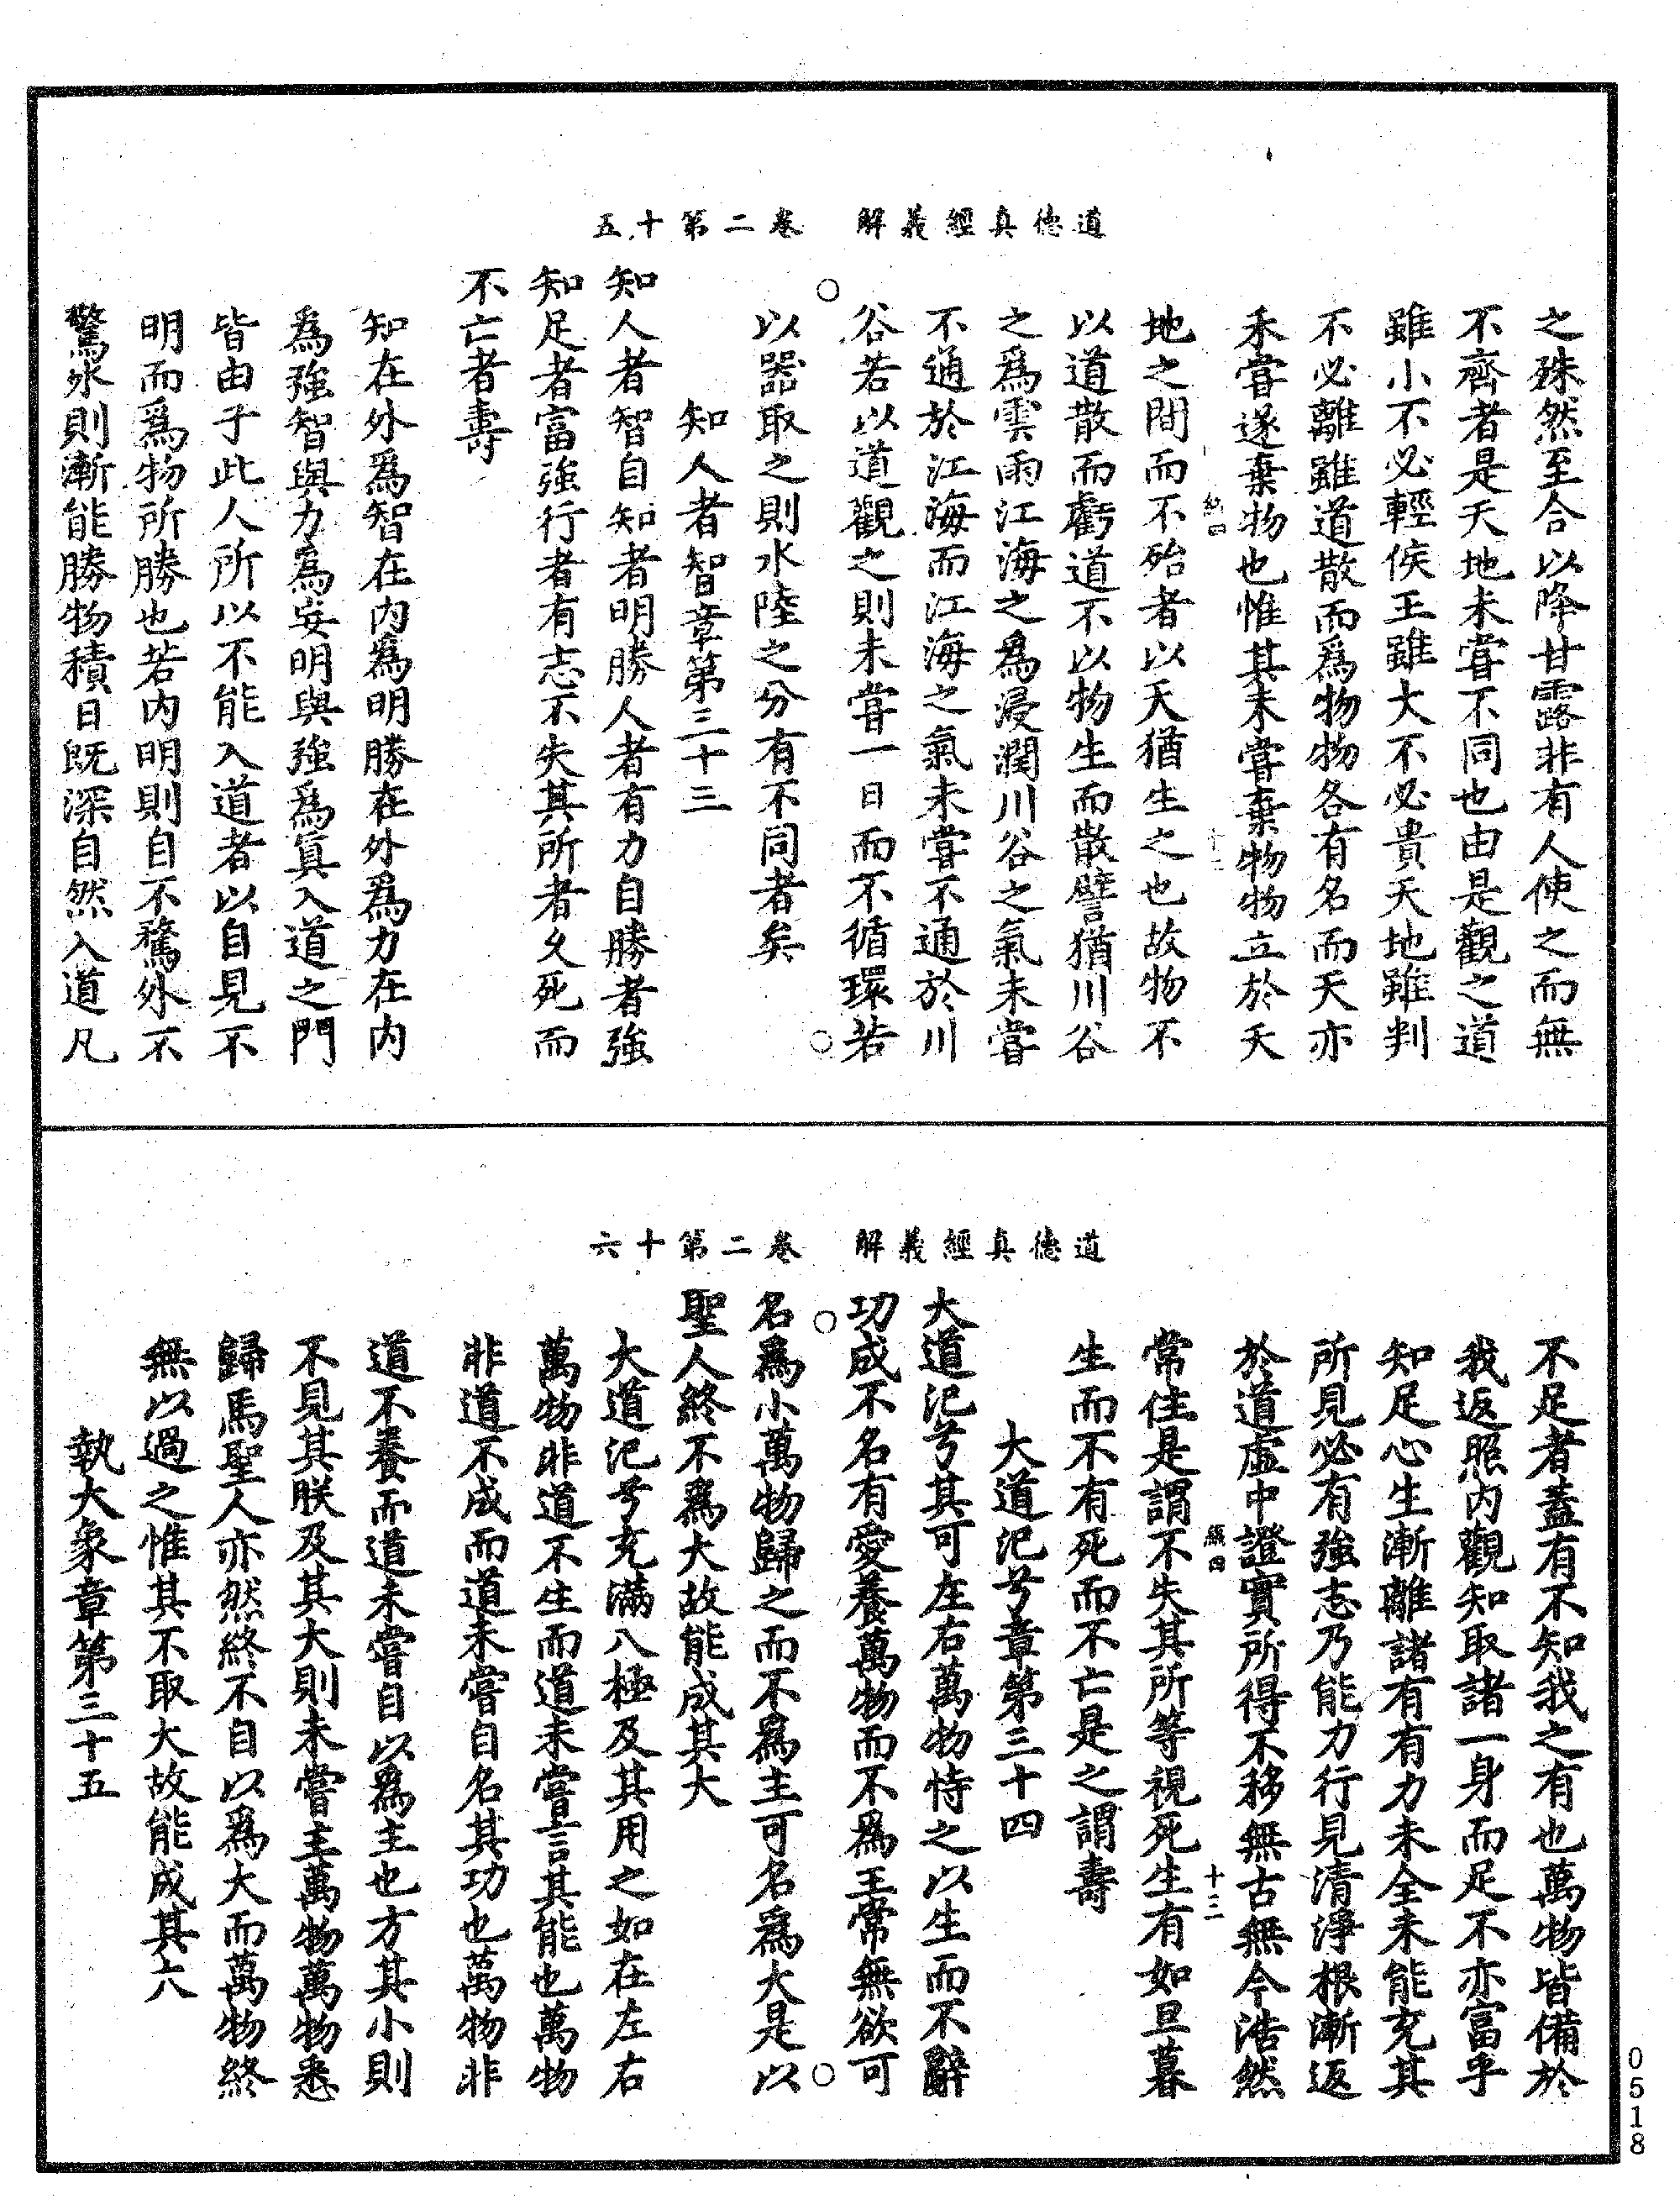 道德真經義解　卷二第十五
之殊然至合以降甘露非有人使之而無
不齊者是天地未嘗不同也由是觀之道
雖小不必輕侯王雖大不必貴天地雖判
不必離雖道散而爲物物各有名而天亦
未嘗遂棄物也惟其未嘗棄物物立於天
地之間而不殆者以天猶生之也故物不
以道散而虧道不以物生而散譬猶川谷
之爲雲雨江海之爲浸潤川谷之氣未嘗
不通於江海而江海之氣未嘗不通於川
谷若以道觀之則未嘗一日而不循環若
以器取之則水陸之分有不同者矣
知人者智章第三十三
知人者智自知者明勝人者有力自勝者強
知足者富強行者有志不失其所者久死而
不亡者壽
知在外爲智在內爲明勝在外爲力在內
爲強智與力爲妄明與強爲真入道之門
皆由于此人所以不能入道者以自見不
明而爲物所勝也若內明則自不騖外不
驚外則漸能勝物積日既深自然入道凡
道德真經義解　卷二第十六
不足者蓋有不知我之有也萬物皆備於
我返照內觀知取諸一身而足不亦富乎
知足心生漸離諸有有力未全未能充其
所見必有強志乃能力行見清淨根漸返
於道虛中證實所得不移無古無今浩然
十三
常住是謂不失其所等視死生有如旦暮
生而不有死而不亡是之謂壽
大道汜兮章第三十四
大道汜兮其可左右萬物恃之以生而不辭
功成不名有愛養萬物而不爲主常無欲可
名爲小萬物歸之而不爲主可名爲大是以
聖人終不爲大故能成其大
大道汜兮充滿八極及其用之如在左右
萬物非道不生而道未嘗言其能也萬物
非道不成而道未嘗自名其功也萬物非
道不養而道未嘗自以爲主也方其小則
不見其朕及其大則未嘗主萬物萬物悉
歸焉聖人亦然終不自以爲大而萬物終
無以過之惟其不取大故能成其大
執大象章第三十五
0518